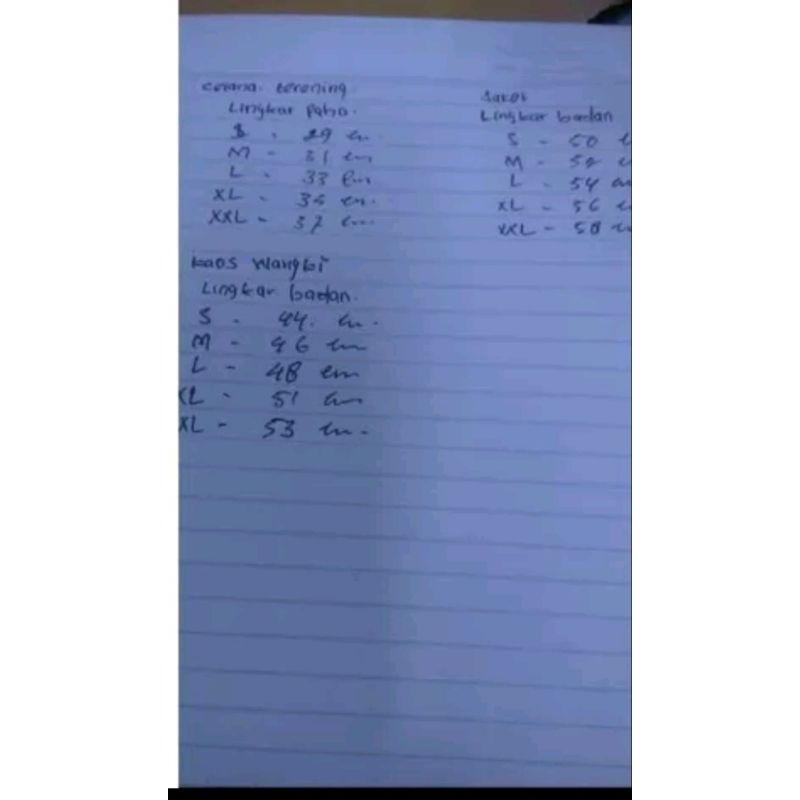 celana. trening
Lingkar Paha.
S - 29 cm
M - 31 cm
L - 33 cm
XL - 35 cm.
XXL - 37 cm.
Jaket
Lingkar badan
S - 50 c
M - 52 c
L - 54 cm
XL - 56 c
XXL - 58 c
kaos wangki
Lingkar badan.
S - 44. cm.
M - 46 cm
L - 48 cm
XL - 51 cm
XL - 53 cm.